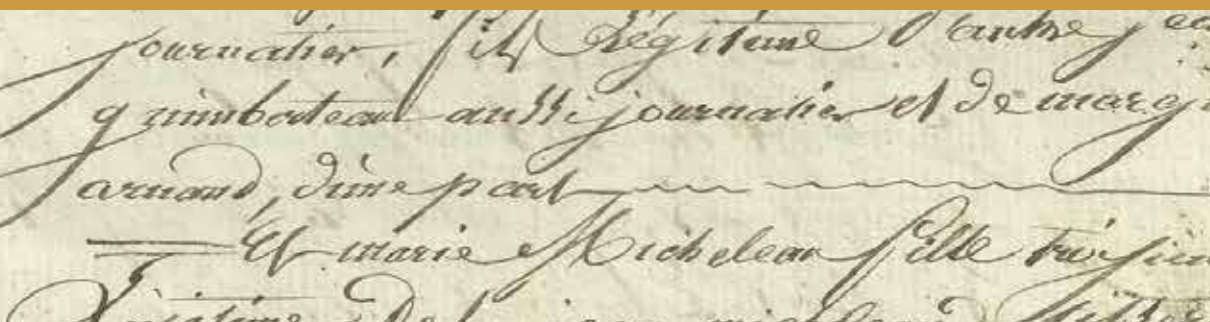 journalier, fils Légitime d'autre j
guimberteau aussi journalier et de marg
arnaud, d'une part
Et marie Micheleau fille
Légitime De